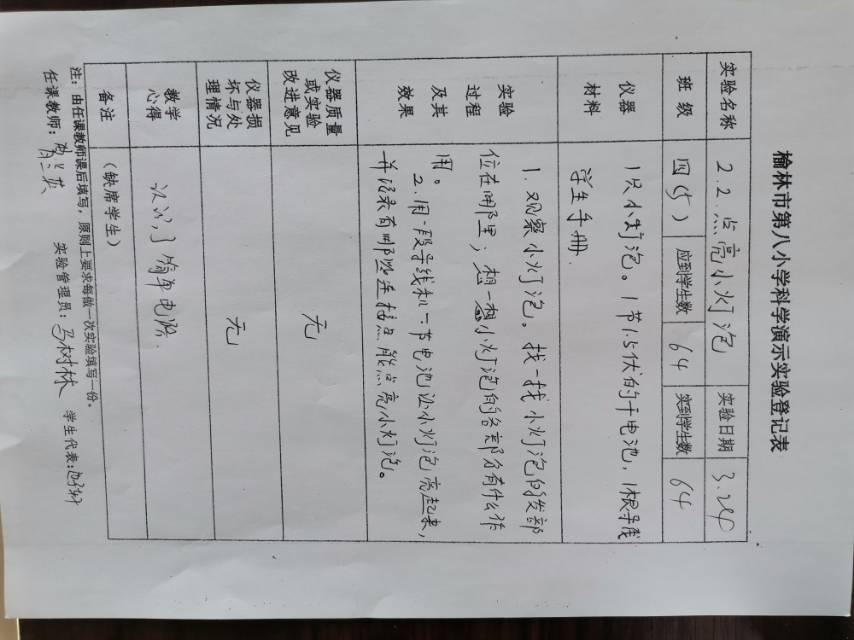 榆林市第八小学科学演示实验登记表
实验名称 2.2 点亮小灯泡 实验日期 3.24
班级 四(5) 应到学生数 64 实到学生数 64
仪器材料 1只小灯泡。1节1.5伏的干电池，1根导线
学生手册.
实验过程及其效果 1. 观察小灯泡。找一找小灯泡的发部
位在哪里，想一想小灯泡的各部分有什么作
用。
2. 用一段导线和一节电池让小灯泡亮起来，
并记录有哪些连接点能点亮小灯泡。
仪器质量或实验改进意见 无
仪器损坏与处理情况 无
教学心得 认识了简单电路.
备注 (缺席学生)
注：由任课教师课后填写，原则上要求每做一次实验填写一份。
任课教师： 实验管理员：马树林 学生代表：